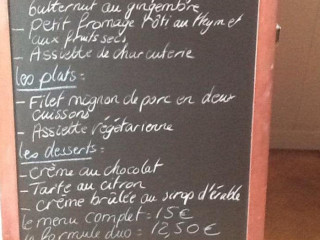 butternut au gingembre
- Petit fromage rôti au thym et
aux fruits secs
- Assiette de charcuterie
les plats :
- Filet mignon de porc en deux
cuissons
- Assiette végétarienne
les desserts :
- Crème au chocolat
- Tarte au citron
- crème brûlée au sirop d'érable
le menu complet = 15€
la formule duo = 12,50€